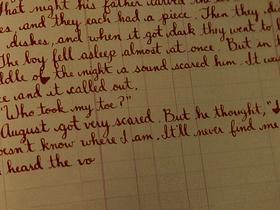 That night his father carved the
es, and they each had a piece. Then they di
dishes, and when it got dark they went to
The boy fell asleep almost at once. But in
ddle of the night, a sound scared him. It wa
ce and it called out,
"Who took my toe?"
August got very scared. But he thought, "
oesn't know where I am. It'll never find me
heard the vo